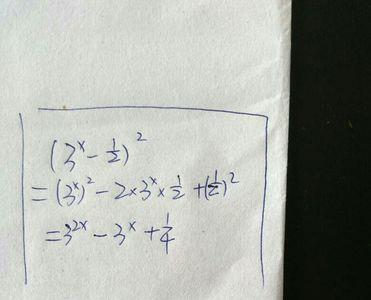 (3^x - 1/2)^2
= (3^x)^2 - 2×3^x×1/2 + (1/2)^2
= 3^{2x} - 3^x + 1/4